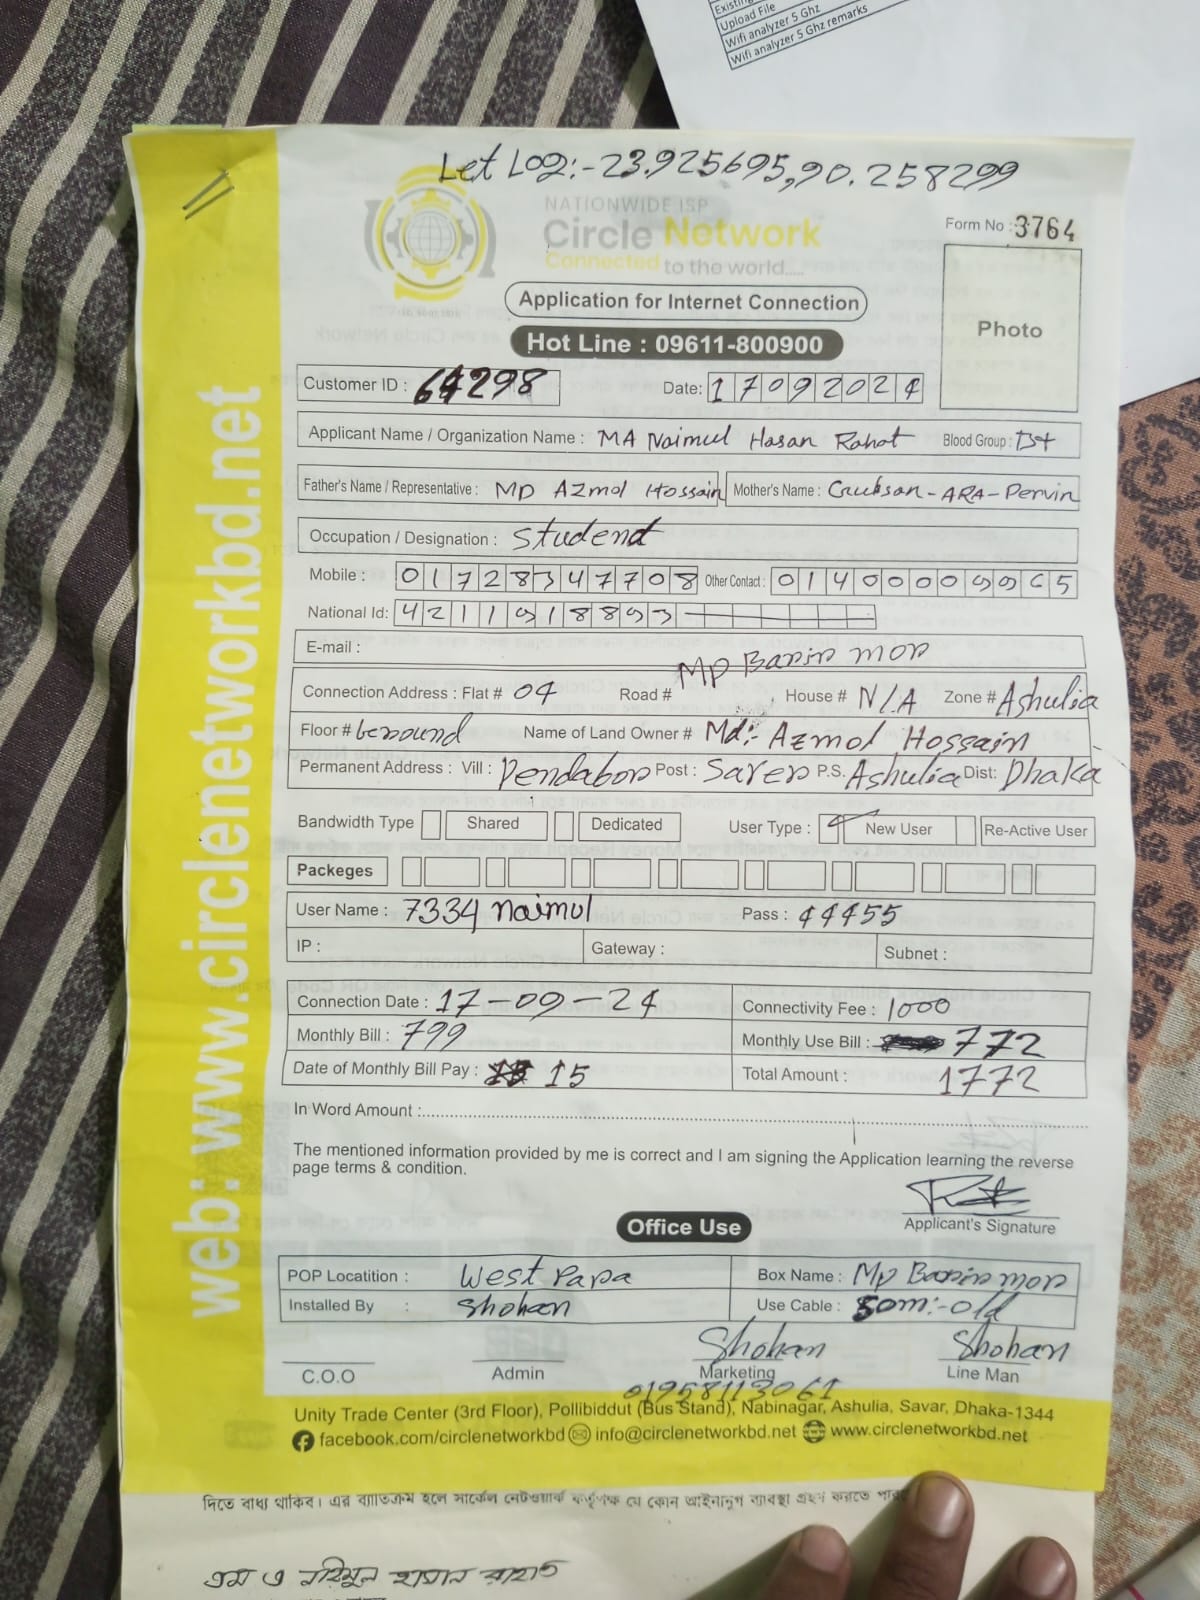 Existing
Upload File
Wifi analyzer 5 Ghz
Wifi analyzer 5 Ghz remarks
Let Log:-23.925695,90.258299
NATIONWIDE ISP
Circle Network
Connected to the world.....
Form No : 3764
Application for Internet Connection
Photo
Hot Line : 09611-800900
Customer ID : 64298 Date: 17092024
Applicant Name / Organization Name : MA Naimul Hasan Rahat Blood Group : B+
Father's Name / Representative : MD Azmol Hossain Mother's Name : -ARA-Pervin
Occupation / Designation : Student
Mobile : 01728347708 Other Contact : 01400009965
National Id: 4211918893
E-mail :
Connection Address : Flat # 04 Road # MP Barir mor House # N/A Zone # Ashulia
Floor # Geround Name of Land Owner # Md:- Azmol Hossain
Permanent Address : Vill : Pendabor Post : Saver P.S. Ashulia Dist: Dhaka
Bandwidth Type Shared Dedicated User Type : New User Re-Active User
Packeges
User Name : 7334 naimul Pass : 44455
IP : Gateway : Subnet :
Connection Date : 17-09-24 Connectivity Fee : 1000
Monthly Bill : 799 Monthly Use Bill : 772
Date of Monthly Bill Pay : 15 Total Amount : 1772
In Word Amount :
The mentioned information provided by me is correct and I am signing the Application learning the reverse
page terms & condition.
Applicant's Signature
Office Use
POP Locatition : West Para Box Name : Mp Barir mor
Installed By : Shohan Use Cable : 50m:-old
Shohan Shohan
C.O.O Admin Marketing Line Man
01958113061
Unity Trade Center (3rd Floor), Pollibiddut (Bus Stand), Nabinagar, Ashulia, Savar, Dhaka-1344
facebook.com/circlenetworkbd info@circlenetworkbd.net www.circlenetworkbd.net
web: www.circlenetworkbd.net
দিতে বাধ্য থাকিব। এর ব্যাতিক্রম হলে সার্কেল নেটওয়ার্ক কর্তৃপক্ষ যে কোন আইনানুগ ব্যবস্থা গ্রহণ করতে
এম এ নাইমুল হাসান রাহাত